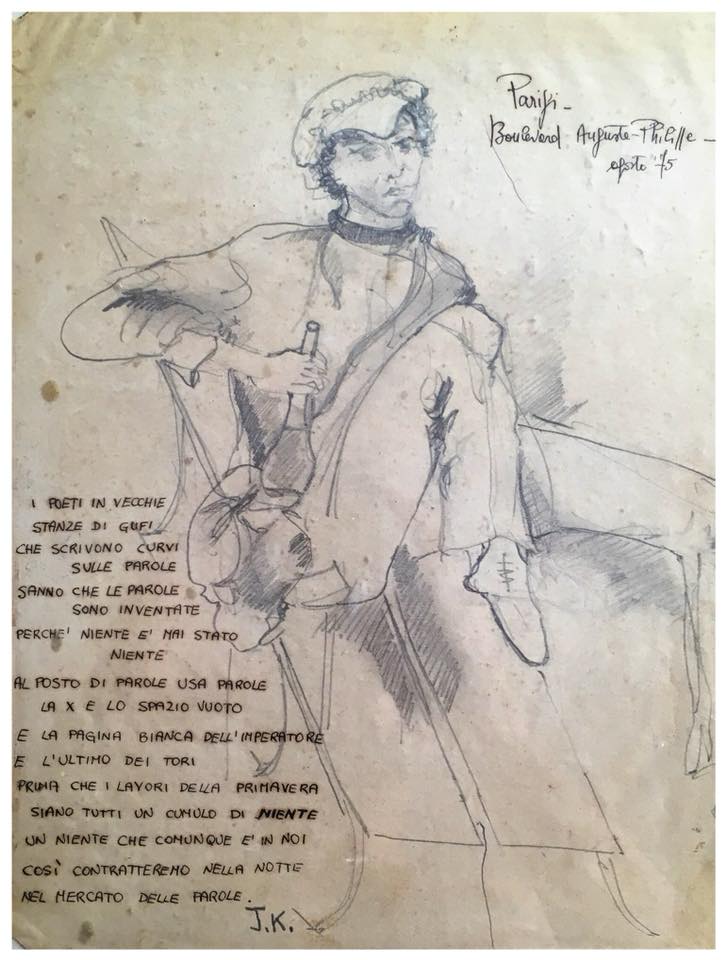 Parigi -
Boulevard Auguste-Philippe -
agosto '75
I POETI IN VECCHIE
STANZE DI GUFI
CHE SCRIVONO CURVI
SULLE PAROLE
SANNO CHE LE PAROLE
SONO INVENTATE
PERCHE' NIENTE E' MAI STATO
NIENTE
AL POSTO DI PAROLE USA PAROLE
LA X E LO SPAZIO VUOTO
E LA PAGINA BIANCA DELL'IMPERATORE
E L'ULTIMO DEI TORI
PRIMA CHE I LAVORI DELLA PRIMAVERA
SIANO TUTTI UN CUMULO DI NIENTE
UN NIENTE CHE COMUNQUE E' IN NOI
COSÌ CONTRATTEREMO NELLA NOTTE
NEL MERCATO DELLE PAROLE.
J.K.